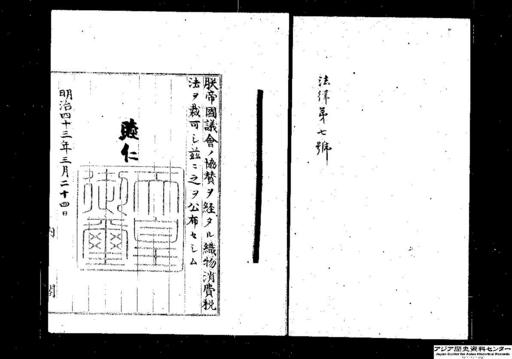 法律第七號
朕帝國議會ノ協贊ヲ經タル織物消費税
法ヲ裁可シ茲ニ之ヲ公布セシム
睦仁
天皇御璽
明治四十三年三月二十四日
内閣
アジア歴史資料センター
Japan Center for Asian Historical Records